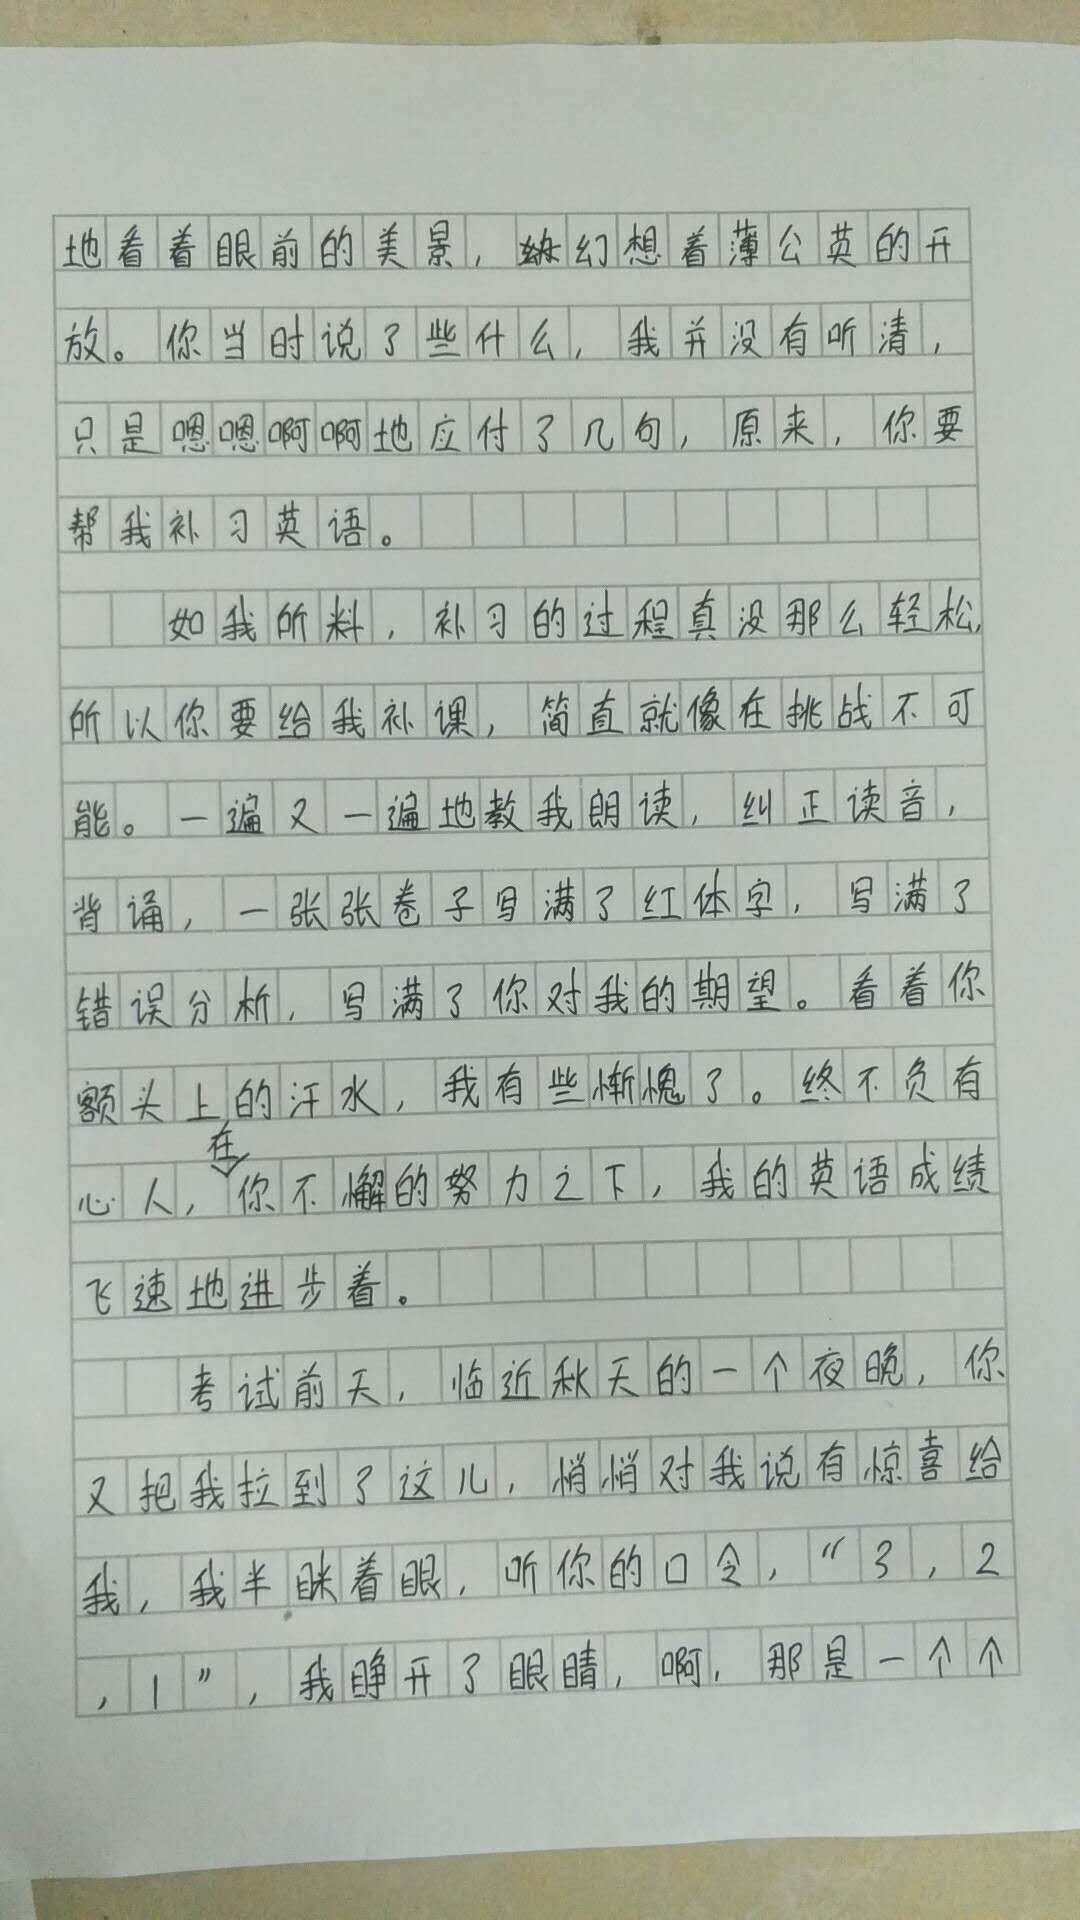 地看着眼前的美景，幻想着薄公英的开
放。你当时说了些什么，我并没有听清，
只是嗯嗯啊啊地应付了几句，原来，你要
帮我补习英语。
如我所料，补习的过程真没那么轻松，
所以你要给我补课，简直就像在挑战不可
能。一遍又一遍地教我朗读，纠正读音，
背诵，一张张卷子写满了红体字，写满了
错误分析，写满了你对我的期望。看着你
额头上的汗水，我有些惭愧了。终不负有
心人，在你不懈的努力之下，我的英语成绩
飞速地进步着。
考试前天，临近秋天的一个夜晚，你
又把我拉到了这儿，悄悄对我说有惊喜给
我，我半眯着眼，听你的口令，“3，2
，1”，我睁开了眼睛，啊，那是一个个